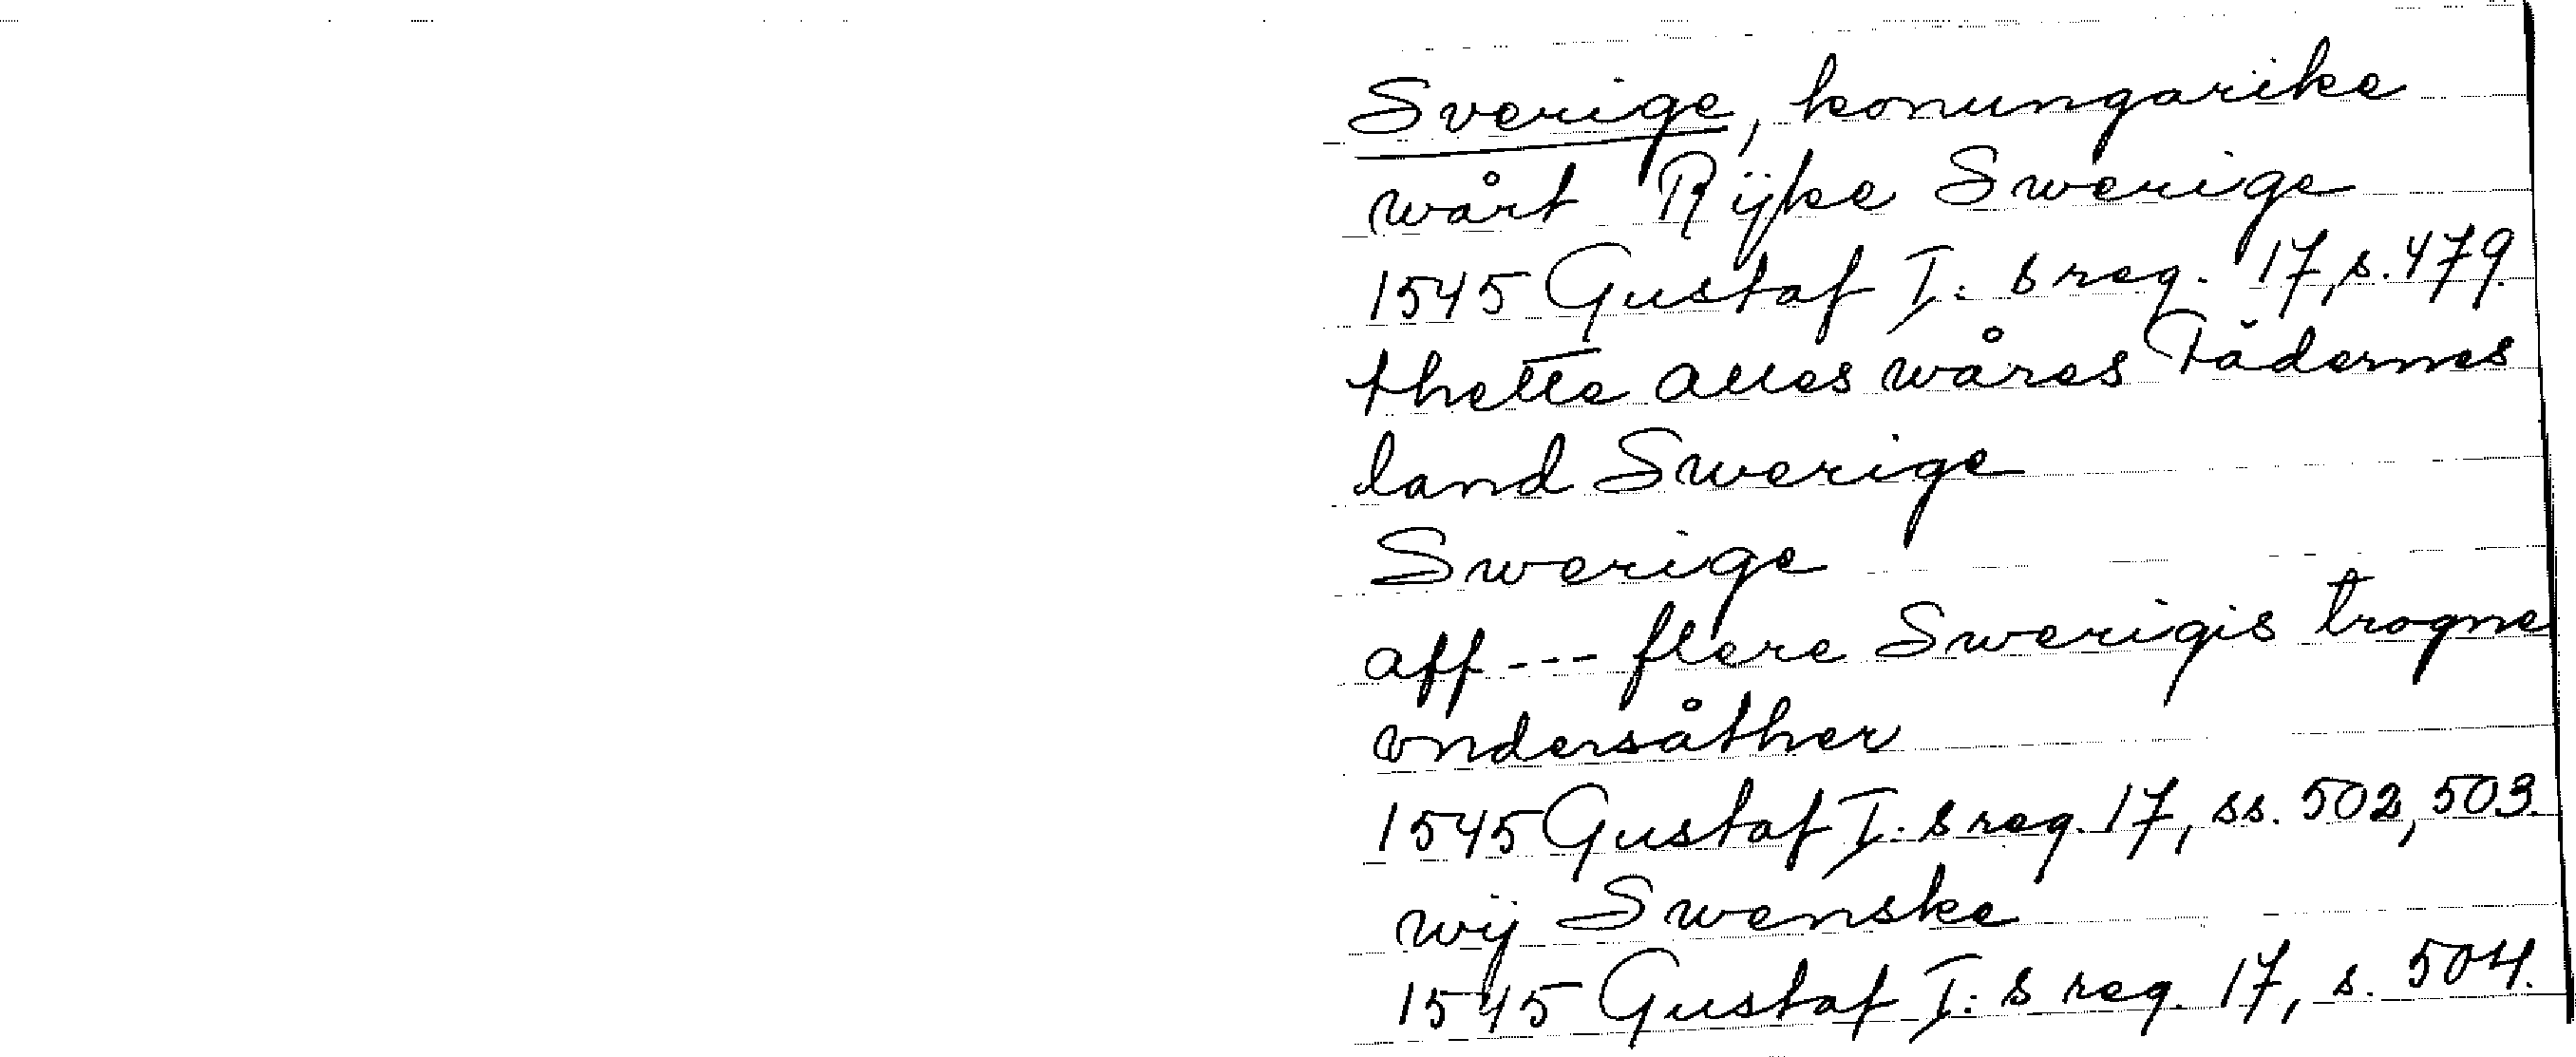 Sverige, konungarike
wårt Rÿke Swerige
1545 Gustaf I:s reg. 17, s. 479.
thette alles wåres Fädernes
land Swerige
Swerige
aff --- flere Swerigis trogne
vndersåther
1545 Gustaf I:s reg. 17, ss. 502, 503.
wij Swenske
1545 Gustaf I:s reg. 17, s. 504.